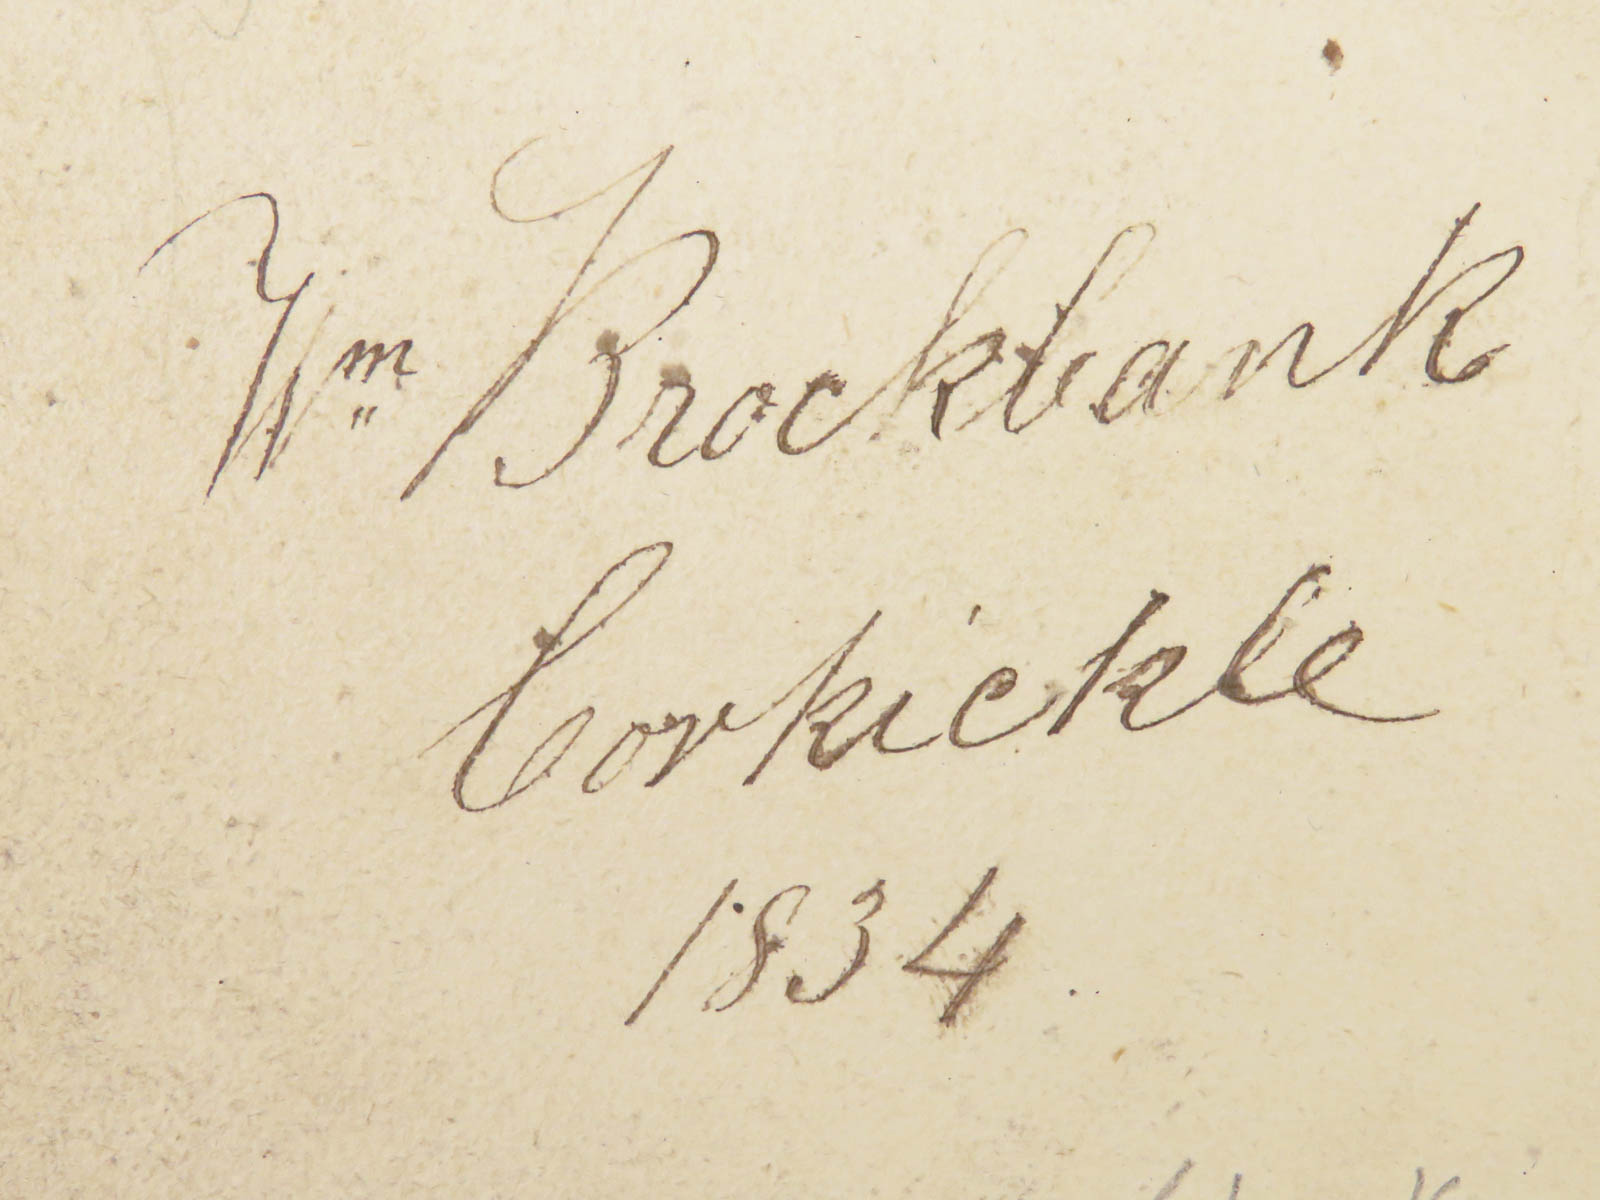 Wm Brockbank
Corkickle
1834